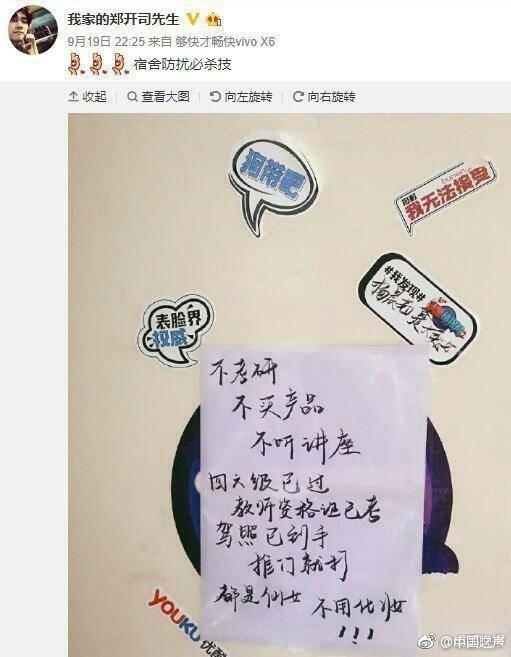 我家的郑开司先生
9月19日 22:25 来自 够快才畅快vivo X6
宿舍防扰必杀技
收起
查看大图
向左旋转
向右旋转
狗带吧
我无法接受
#我发现#
表脸界
权威
不考研
不买产品
不听讲座
四六级已过
教师资格证已考
驾照已到手
推门就打
都是仙女 不用化妆
!!!
YOUKU 优酷
@中国之声